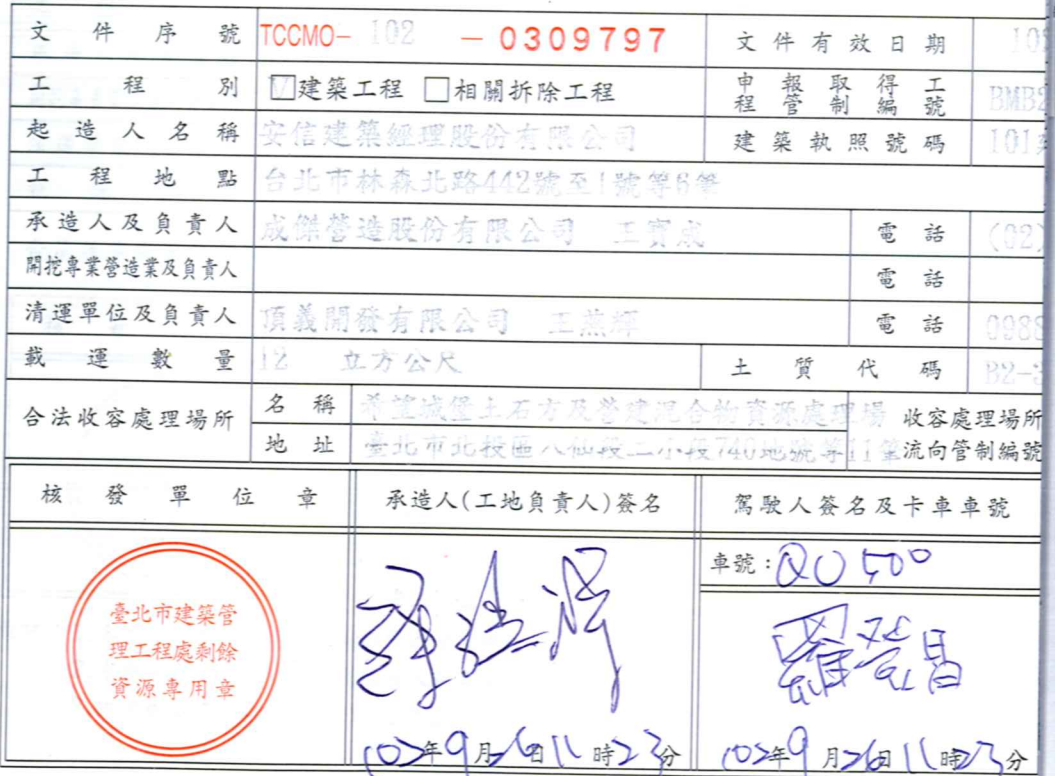 文件序號 TCCMO- 102 - 0309797 文件有效日期 10
工程別 ☑建築工程 □相關拆除工程 申報取得工程管制編號 BMB2
起造人名稱 安信建築經理股份有限公司 建築執照號碼 101
工程地點 台北市林森北路442號至1號等6筆
承造人及負責人 成傑營造股份有限公司 王寶成 電話 (02)
開挖專業營造業及負責人 電話
清運單位及負責人 頂義開發有限公司 王燕輝 電話 0988
載運數量 12 立方公尺 土質代碼 B2-3
合法收容處理場所 名稱 希望城堡土石方及營建混合物資源處理場 收容處理場所
地址 臺北市北投區八仙段二小段740地號等11筆 流向管制編號
核發單位章 承造人(工地負責人)簽名 駕駛人簽名及卡車車號
車號:QU 500
臺北市建築管
理工程處剩餘
資源專用章
羅登昌
102年9月26日11時23分 102年9月26日11時23分